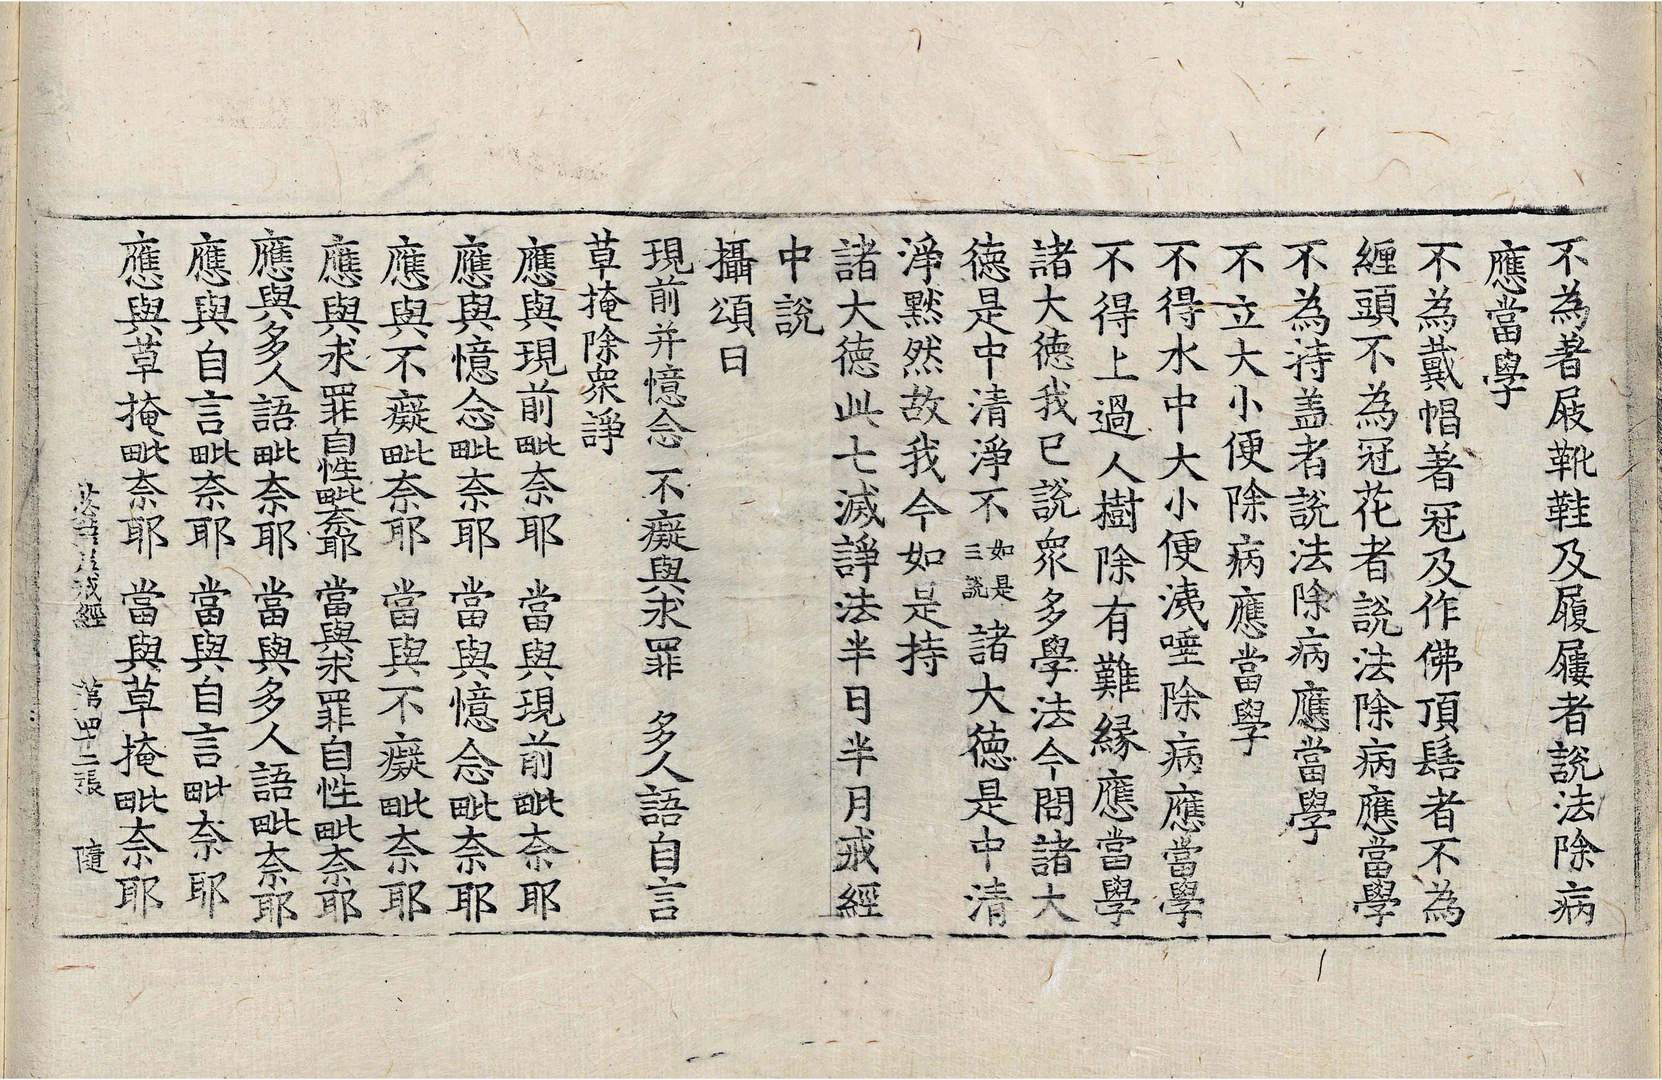 不為著屐靴鞋及履屨者說法除病
應當學
不為戴帽著冠及作佛頂髻者不為
纏頭不為冠花者說法除病應當學
不為持盖者說法除病應當學
不立大小便除病應當學
不得水中大小便洟唾除病應當學
不得上過人樹除有難緣應當學
諸大德我已說眾多學法今問諸大
德是中清淨不如是三說諸大德是中清
淨默然故我今如是持
諸大德此七滅諍法半月半月戒經
中說
攝頌曰
現前并憶念 不癡與求罪 多人語自言
草掩除眾諍
應與現前毗奈耶 當與現前毗奈耶
應與憶念毗奈耶 當與憶念毗奈耶
應與不癡毗奈耶 當與不癡毗奈耶
應與求罪自性毗奈耶 當與求罪自性毗奈耶
應與多人語毗奈耶 當與多人語毗奈耶
應與自言毗奈耶 當與自言毗奈耶
應與草掩毗奈耶 當與草掩毗奈耶
戒經 第四二張 隨